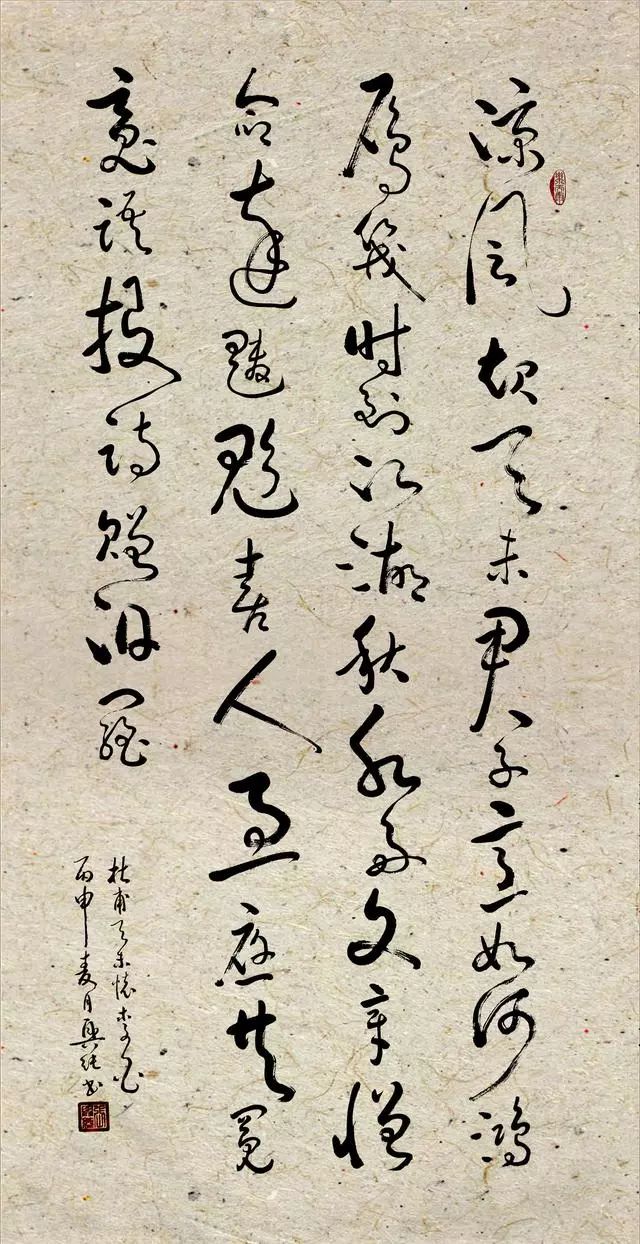 涼風起天末君子意如何鴻
雁幾时到江湖秋水多文章憎
命達魑魅喜人過應共冤
魂語投詩贈汨羅
杜甫天末懷李白
丙申麦月興书